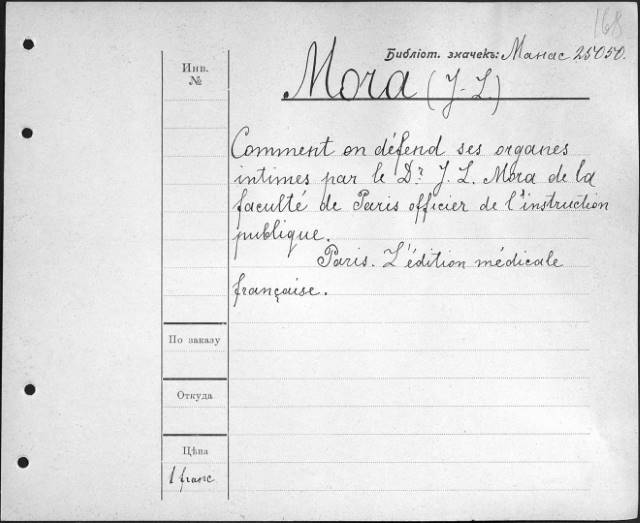 168
Библіот. значекъ: Манас 25050.
Инв.
№
Mora (J. L.)
Comment on défend ses organes
intimes par le Dr. J. L. Mora de la
faculté de Paris officier de l'instruction
publique.
Paris. L'édition médicale
française.
По заказу
Откуда
Цѣна
1 franc